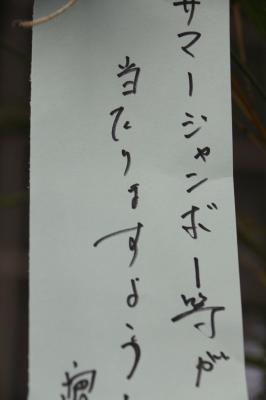 サマージャンボ一等が
当たりますよう